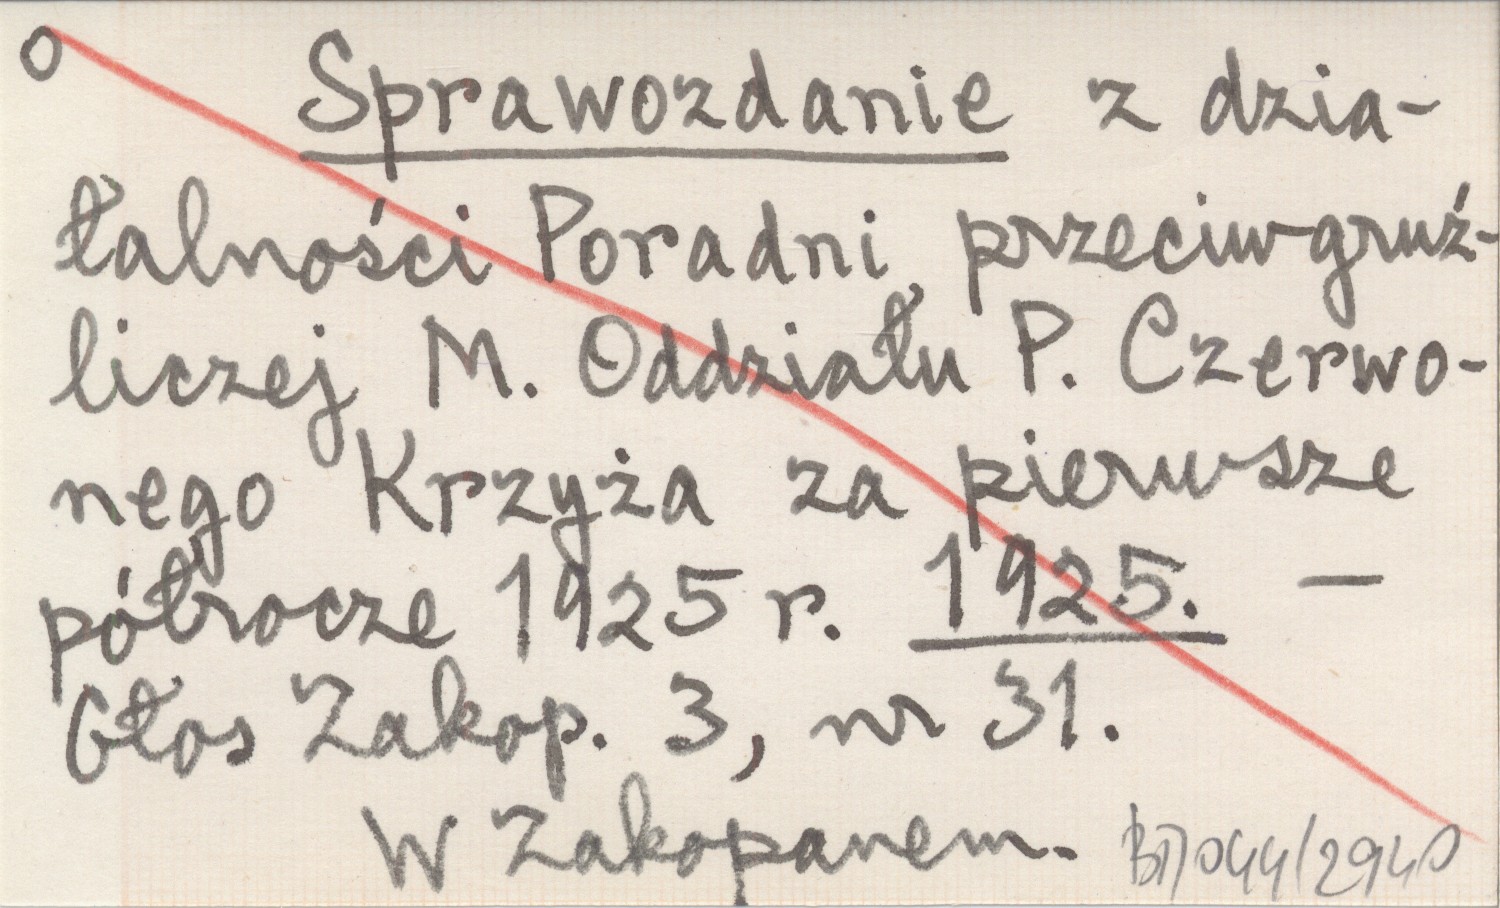 o Sprawozdanie z dzia-
łalności Poradni przeciwgruź-
liczej M. Oddziału P. Czerwo-
nego Krzyża za pierwsze
półrocze 1925 r. 1925. —
Głos Zakop. 3, nr 31.
W Zakopanem.
044/2940